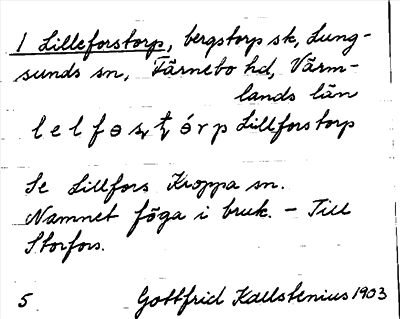 1 Lilleforstorp, bergstorp sk, Lung-
sunds sn, Färnebo hd, Värm-
lands län
lelfɵsʈórp Lillforstorp
Se Lillfors Kroppa sn.
Namnet föga i bruk. – Till
Storfors.
5 Gottfrid Kallstenius 1903